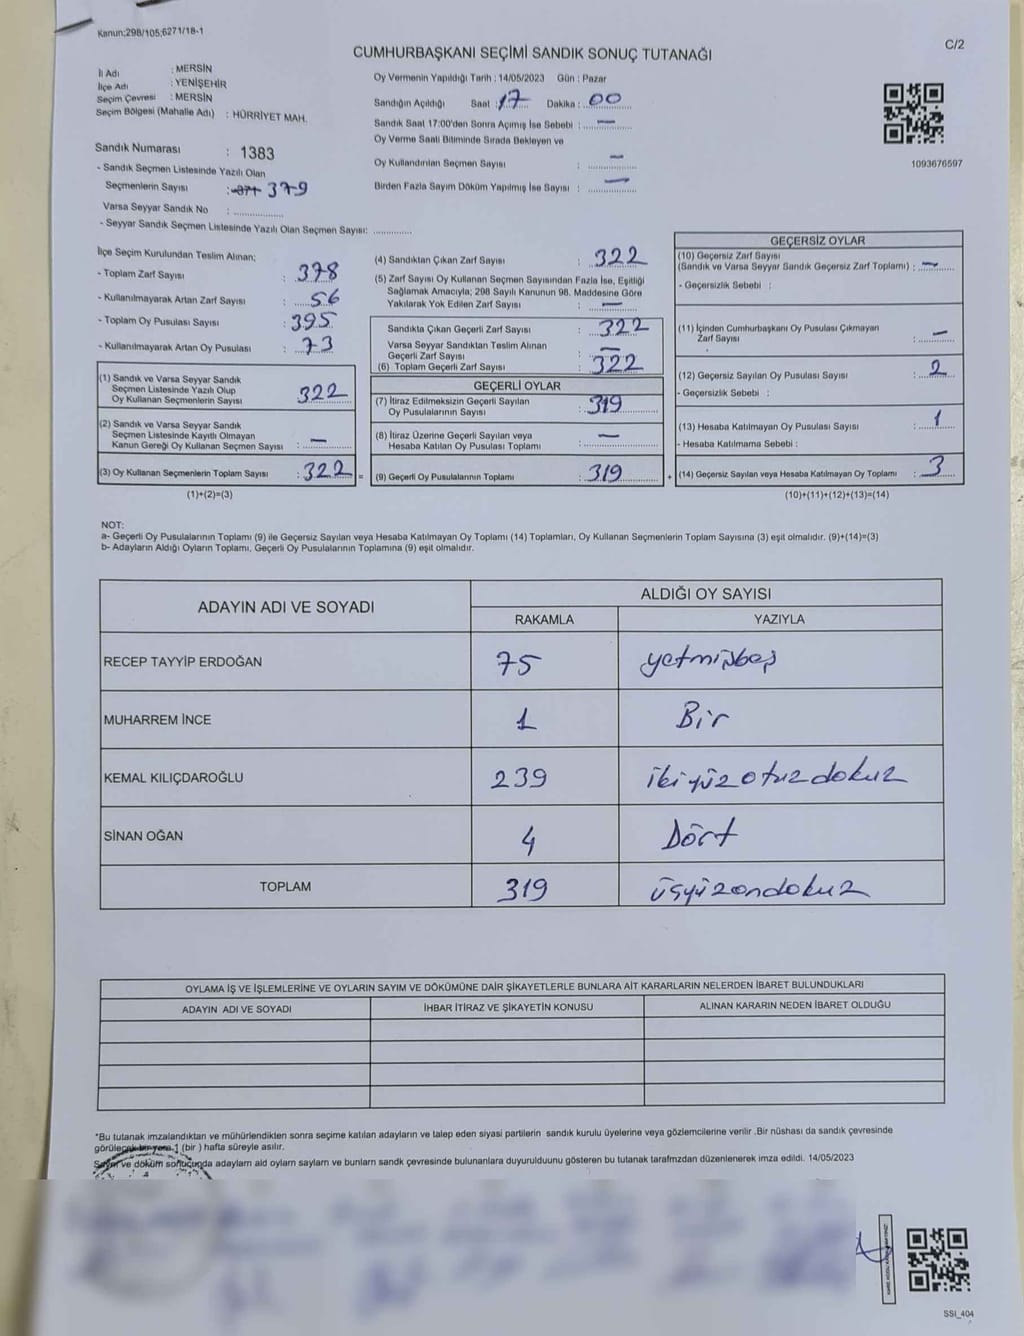 Kanun:298/105;6271/18-1
C/2
CUMHURBAŞKANI SEÇİMİ SANDIK SONUÇ TUTANAĞI
İli Adı : MERSİN
İlçe Adı : YENİŞEHİR
Seçim Çevresi : MERSİN
Seçim Bölgesi (Mahalle Adı) : HÜRRİYET MAH.
Oy Vermenin Yapıldığı Tarih : 14/05/2023 Gün : Pazar
Sandığın Açıldığı Saat : 17 Dakika : 00
Sandık Saat 17:00'den Sonra Açımış İse Sebebi : —
Oy Verme Saati Bitiminde Sırada Bekleyen ve
Oy Kullandırılan Seçmen Sayısı : —
Birden Fazla Sayım Döküm Yapılmış İse Sayısı : —
1093676597
Sandık Numarası : 1383
- Sandık Seçmen Listesinde Yazılı Olan
Seçmenlerin Sayısı : 379
Varsa Seyyar Sandık No : ..............
- Seyyar Sandık Seçmen Listesinde Yazılı Olan Seçmen Sayısı: ............
İlçe Seçim Kurulundan Teslim Alınan;
- Toplam Zarf Sayısı : 378
- Kullanılmayarak Artan Zarf Sayısı : 56
- Toplam Oy Pusulası Sayısı : 395
- Kullanılmayarak Artan Oy Pusulası : 73
(1) Sandık ve Varsa Seyyar Sandık
Seçmen Listesinde Yazılı Olup
Oy Kullanan Seçmenlerin Sayısı 322
(2) Sandık ve Varsa Seyyar Sandık
Seçmen Listesinde Kayıtlı Olmayan
Kanun Gereği Oy Kullanan Seçmen Sayısı : —
(3) Oy Kullanan Seçmenlerin Toplam Sayısı : 322 =
(1)+(2)=(3)
(4) Sandıktan Çıkan Zarf Sayısı : 322
(5) Zarf Sayısı Oy Kullanan Seçmen Sayısından Fazla İse, Eşitliği
Sağlamak Amacıyla; 298 Sayılı Kanunun 98. Maddesine Göre
Yakılarak Yok Edilen Zarf Sayısı : —
Sandıkta Çıkan Geçerli Zarf Sayısı : 322
Varsa Seyyar Sandıktan Teslim Alınan
Geçerli Zarf Sayısı : —
(6) Toplam Geçerli Zarf Sayısı : 322
GEÇERLİ OYLAR
(7) İtiraz Edilmeksizin Geçerli Sayılan
Oy Pusulalarının Sayısı : 319
(8) İtiraz Üzerine Geçerli Sayılan veya
Hesaba Katılan Oy Pusulası Toplamı : —
(9) Geçerli Oy Pusulalarının Toplamı : 319 +
GEÇERSİZ OYLAR
(10) Geçersiz Zarf Sayısı
(Sandık ve Varsa Seyyar Sandık Geçersiz Zarf Toplamı) : —
- Geçersizlik Sebebi :
(11) İçinden Cumhurbaşkanı Oy Pusulası Çıkmayan
Zarf Sayısı : —
(12) Geçersiz Sayılan Oy Pusulası Sayısı : 2
- Geçersizlik Sebebi :
(13) Hesaba Katılmayan Oy Pusulası Sayısı : 1
- Hesaba Katılmama Sebebi :
(14) Geçersiz Sayılan veya Hesaba Katılmayan Oy Toplamı : 3
(10)+(11)+(12)+(13)=(14)
NOT:
a- Geçerli Oy Pusulalarının Toplamı (9) ile Geçersiz Sayılan veya Hesaba Katılmayan Oy Toplamı (14) Toplamları, Oy Kullanan Seçmenlerin Toplam Sayısına (3) eşit olmalıdır. (9)+(14)=(3)
b- Adayların Aldığı Oyların Toplamı, Geçerli Oy Pusulalarının Toplamına (9) eşit olmalıdır.
ADAYIN ADI VE SOYADI ALDIĞI OY SAYISI
RAKAMLA YAZIYLA
RECEP TAYYİP ERDOĞAN 75 yetmişbeş
MUHARREM İNCE 1 Bir
KEMAL KILIÇDAROĞLU 239 ikiyüzotuzdokuz
SİNAN OĞAN 4 Dört
TOPLAM 319 üçyüzondokuz
OYLAMA İŞ VE İŞLEMLERİNE VE OYLARIN SAYIM VE DÖKÜMÜNE DAİR ŞİKAYETLERLE BUNLARA AİT KARARLARIN NELERDEN İBARET BULUNDUKLARI
ADAYIN ADI VE SOYADI İHBAR İTİRAZ VE ŞİKAYETİN KONUSU ALINAN KARARIN NEDEN İBARET OLDUĞU
*Bu tutanak imzalandıktan ve mühürlendikten sonra seçime katılan adayların ve talep eden siyasi partilerin sandık kurulu üyelerine veya gözlemcilerine verilir .Bir nüshası da sandık çevresinde
görülecek bir yere 1 (bir ) hafta süreyle asılır.
Sayım ve döküm sonucunda adayların ald oyların sayların ve bunların sandk çevresinde bulunanlara duyurulduunu gösteren bu tutanak tarafmzdan düzenlenerek imza edildi. 14/05/2023
SSI_404